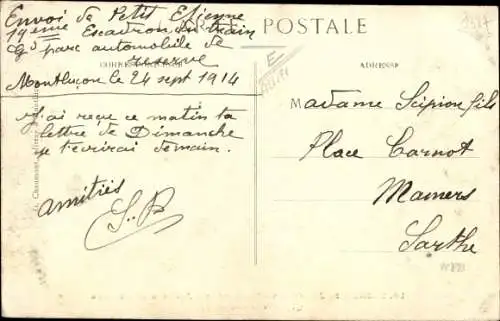 POSTALE
Envoi de Petit Etienne
19eme Escadron du train
Gd parc automobile de
reserve
Montluçon le 24 sept 1914
J'ai reçu ce matin ta
lettre de Dimanche
je t'ecrirai demain.
amitiés
S.P
ADRESSE
Madame Scipion fils
Place Carnot
Mamers
Sarthe